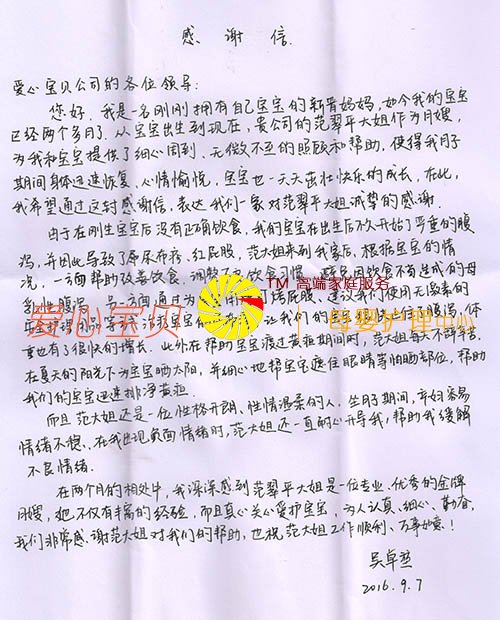 感谢信
爱心宝贝公司的各位领导:
您好,我是一名刚刚拥有自己宝宝的新晋妈妈,如今我的宝宝
已经两个多月了,从宝宝出生到现在,贵公司的范翠平大姐作为月嫂,
为我和宝宝提供了细心周到、无微不至的照顾和帮助,使得我月子
期间身体迅速恢复,心情愉悦,宝宝也一天天茁壮快乐的成长,在此,
我希望通过这封感谢信,表达我们一家对范翠平大姐诚挚的感谢.
由于在刚生宝宝后没有正确饮食,我们的宝宝在出生后不久开始了严重的腹
泻,并因此导致了尿布疹、红屁股,范大姐来到我家后,根据宝宝的情
况,一方面帮助改善饮食,调整 饮食习惯 饮食 造成的母
乳性腹泻,另一方面通过为 屁股,建议我们使用无激素的
TM 高端家庭服务
爱心宝贝 母婴护理中心
让我们的 腹泻,体
重也有了很快的增长.此外在帮助宝宝渡过黄疸期间时,范大姐每天不辞辛苦,
在夏天的阳光下为宝宝晒太阳,并细心地帮宝宝遮住眼睛等怕晒部位,帮助
我们的宝宝迅速排净黄疸.
而且范大姐还是一位性格开朗,性情温柔的人,坐月子期间,产妇容易
情绪不稳、在我出现负面情绪时,范大姐还一直耐心开导我,帮助我缓解
不良情绪.
在两个月的相处中,我深深感到范翠平大姐是一位专业、优秀的金牌
月嫂,她不仅有丰富的经验,而且真心关心爱护宝宝,为人认真、细心、勤奋,
我们非常感谢范大姐对我们的帮助,也祝范大姐工作顺利、万事如意!
吴卓
2016.9.7